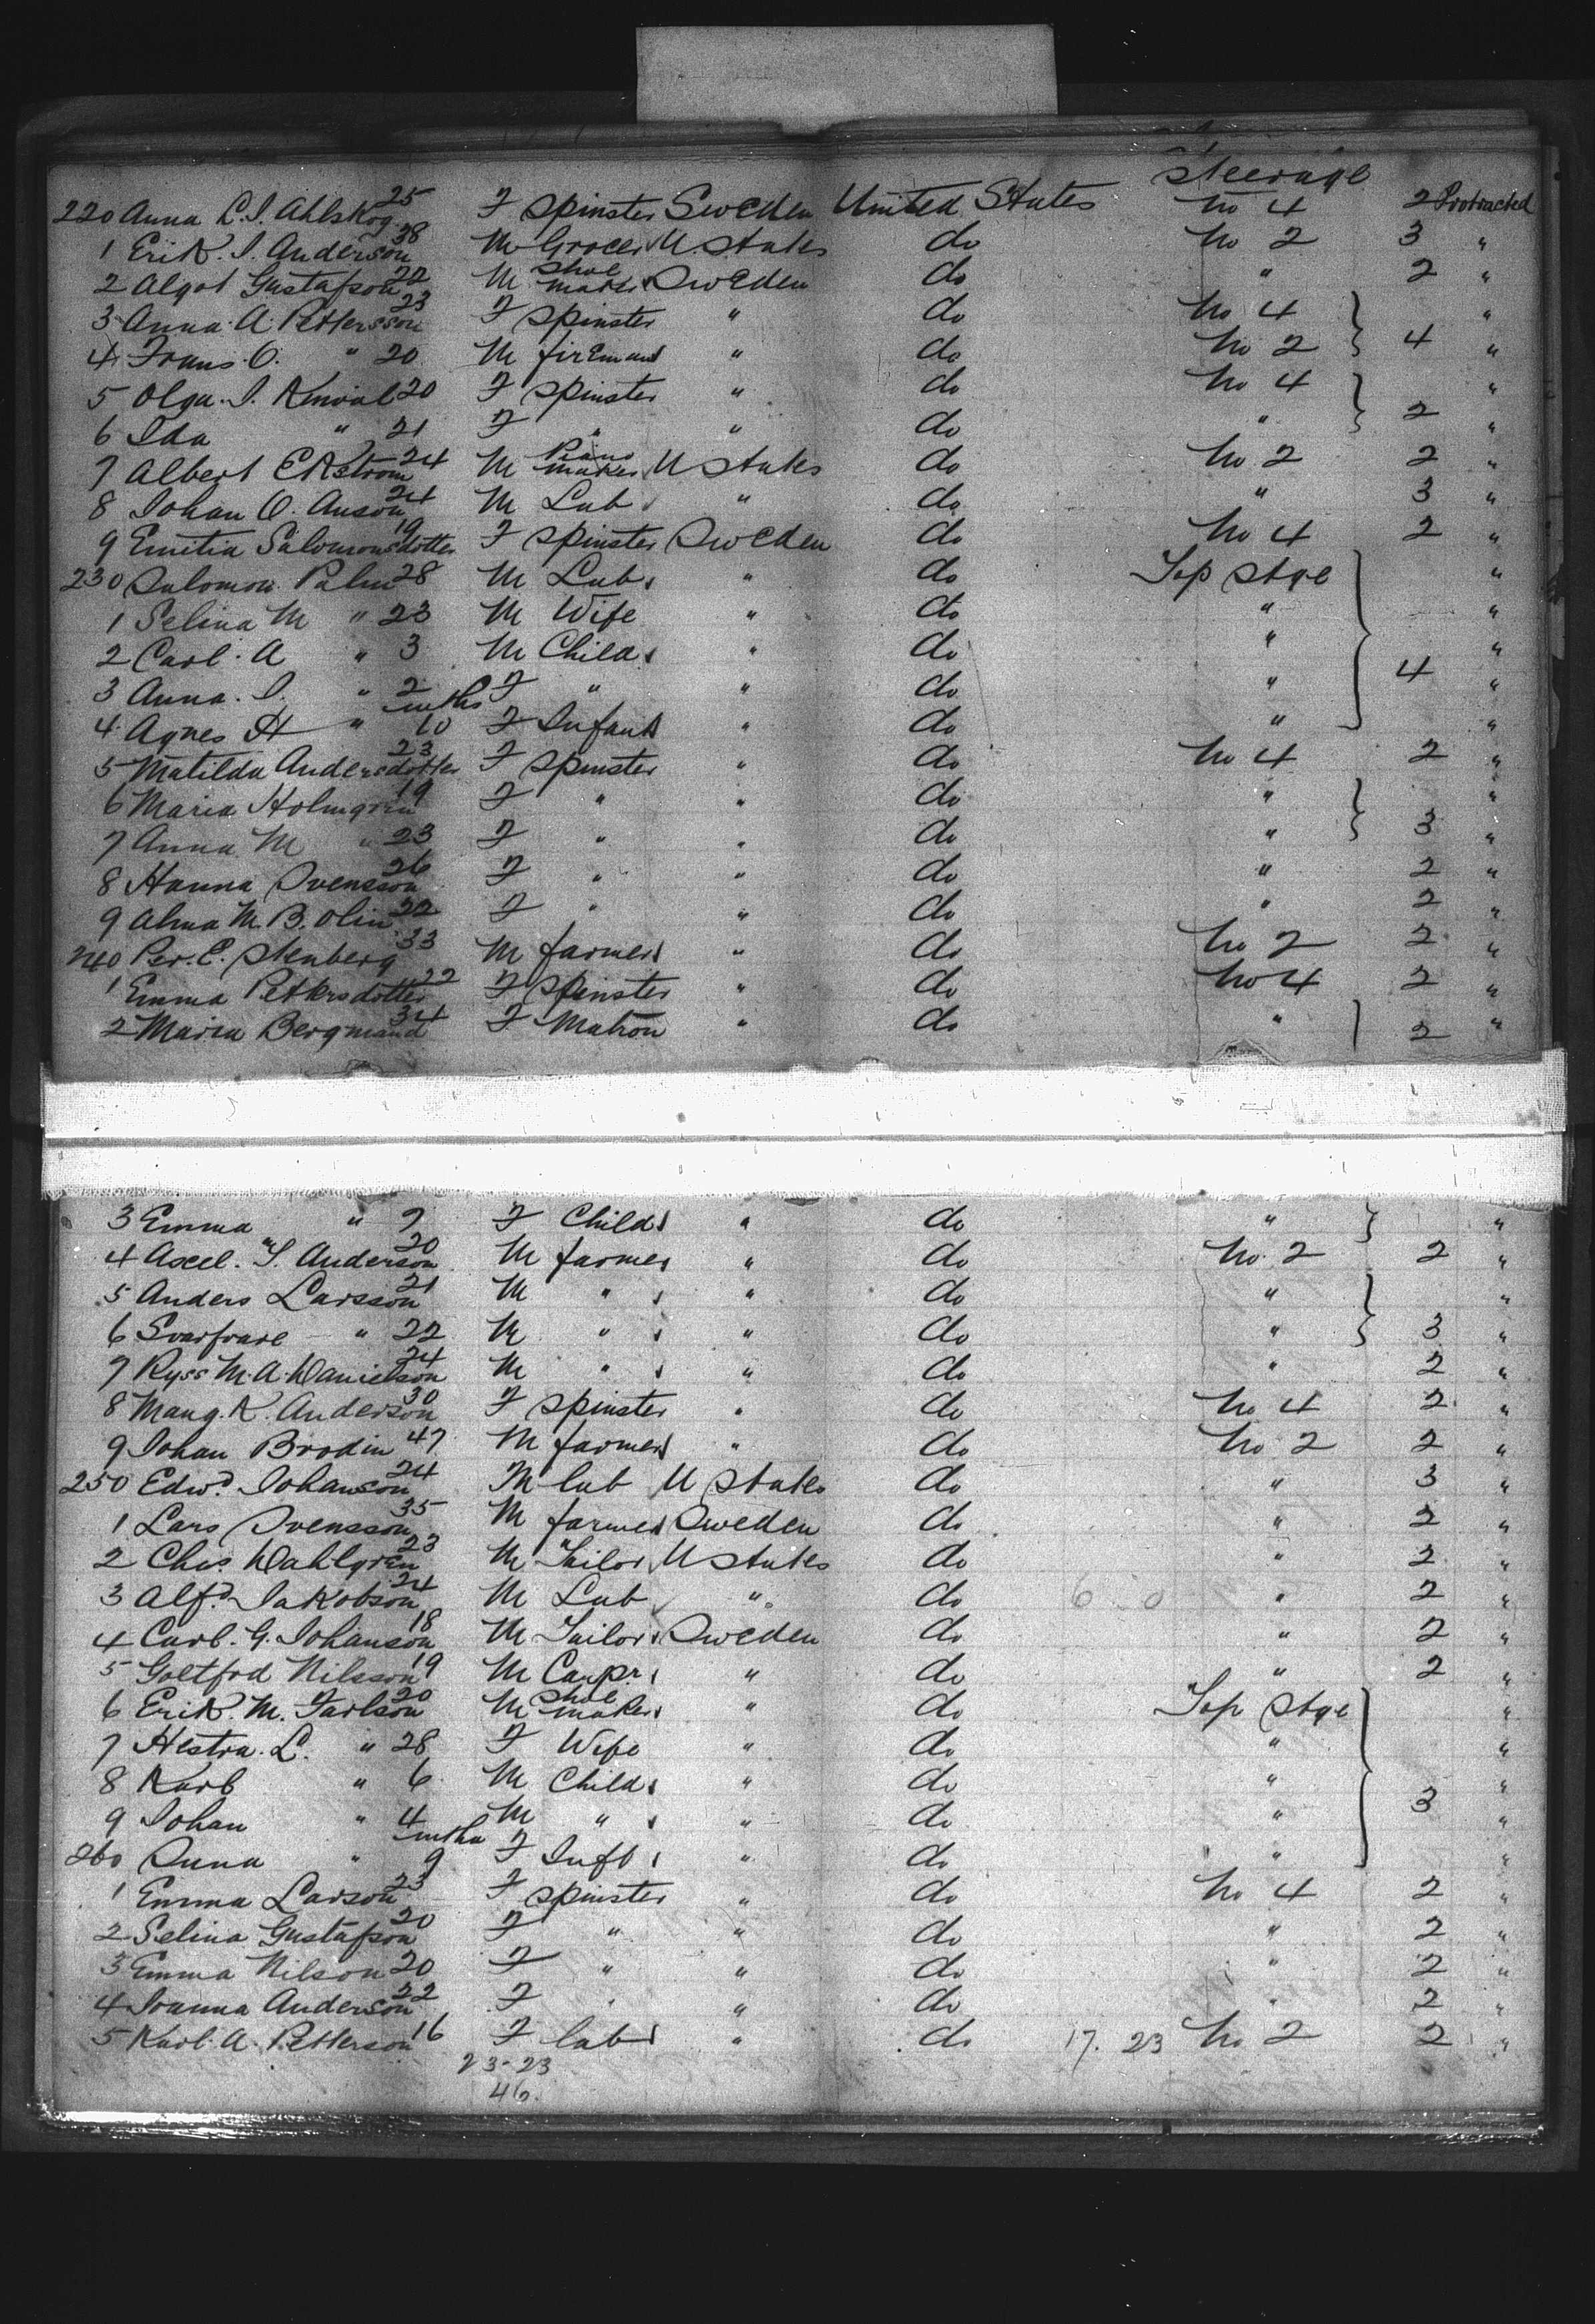 Steerage
220 Anna L. I. Ahlskog 25 F Spinster Sweden United States No 4 2 Protracted
1 Erik. I. Anderson 38 M Grocer U. States do No 2 3 "
2 Algot Gustafson 22 M Shoe maker Sweden do " 2 "
3 Anna A. Pettersson 23 F Spinster " do No 4 "
4 Frans O. " 20 M fireman " do No 2 4 "
5 Olga. I. 20 F Spinster " do No 4 "
6 Ida " 21 F " " do " 2 "
7 Albert Ekstrom 24 M Piano maker U States do No 2 2 "
8 Johan O. Anson 24 M Lab " do " 3 "
9 Emilia Salomonsdotter 19 F Spinster Sweden do No 4 2 "
230 Salomon Palm 28 M Lab " do Top Stge "
1 Selina M " 23 M Wife " do " "
2 Carl. A " 3 M Child " do " "
3 Anna. I. " 2 F " " do " 4 "
4 Agnes H " mths 10 F Infant " do " "
5 Matilda Andersdotter 23 F Spinster " do No 4 2 "
6 Maria Holmgren 19 F " " do " "
7 Anna M " 23 F " " do " 3 "
8 Hanna Svensson 26 F " " do " 2 "
9 Alma M. B. Olin 22 F " " do " 2 "
240 Per. E. Stenberg 33 M farmer " do No 2 2 "
1 Emma Pettersdotter 22 F Spinster " do No 4 2 "
2 Maria Bergmand 34 F Matron " do " 2 "
3 Emma " 7 F Child " do " "
4 Axel. S. Anderson 20 M farmer " do No. 2 2 "
5 Anders Larsson 21 M " " do " "
6 " 22 M " " do " 3 "
7 Ryss M. A. Danielson 24 M " " do " 2 "
8 Mang. K. Anderson 30 F Spinster " do No 4 2 "
9 Johan Brodin 47 M farmer " do No 2 2 "
250 Edwd. Johanson 24 M lab U States do " 3 "
1 Lars Svensson 35 M farmer Sweden do " 2 "
2 Chs. Dahlgren 23 M Tailor U States do " 2 "
3 Alfd. Jakobson 24 M Lab " do 6 0 " 2 "
4 Carl. G. Johanson 18 M Tailor Sweden do " 2 "
5 Gottfrd Nilsson 19 M Carpr " do " 2 "
6 Erik. M. Farlson 20 M Shoe maker " do Top Stge "
7 Hestra. L. " 28 F Wife " do " "
8 Karl " 6 M Child " do " "
9 Johan " 4 M " " do " 3 "
260 Anna " mths 9 F Inft " do " "
1 Emma Larson 23 F Spinster " do No 4 2 "
2 Selina Gustafson 20 F " " do " 2 "
3 Emma Nilson 20 F " " do " 2 "
4 Joanna Anderson 22 F " " do " 2 "
5 Karl. A. Petterson 16 F lab " do 17. 23 No 2 2 "
23-23
46.